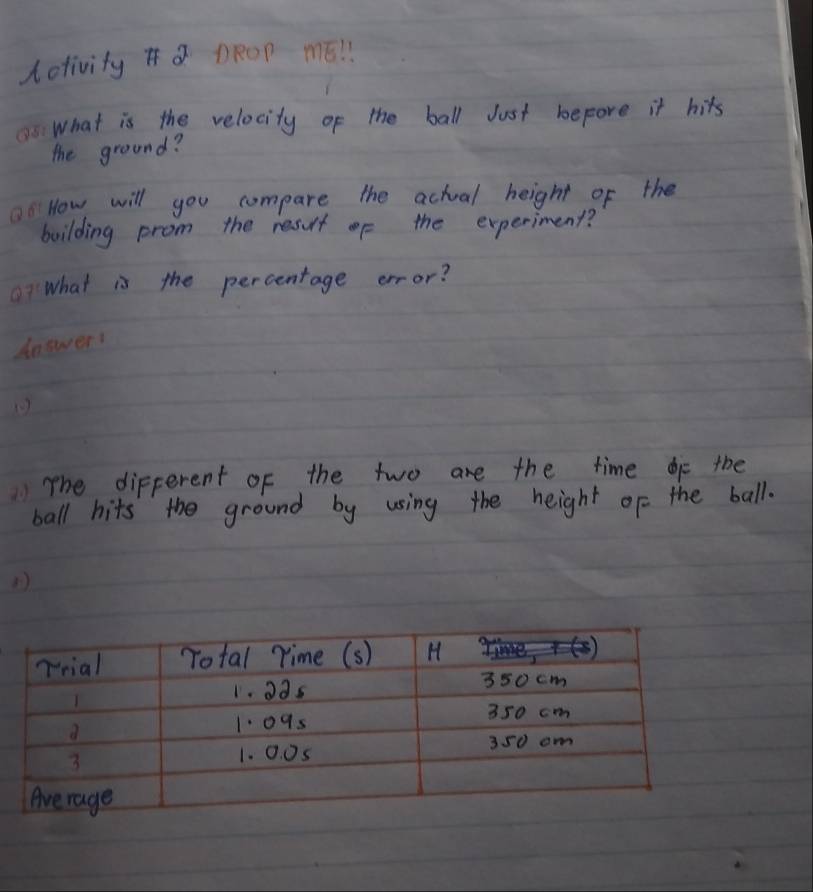 Activity # 2 DROP ME!!
Q5: What is the velocity of the ball Just before it hits
the ground?
Q6: How will you compare the actual height of the
building prom the result of the experiment?
Q7: What is the percentage error?
Answer:
1.)
2.) The different of the two are the time of the
ball hits the ground by using the height of the ball.
Trial Total Time (s) H
1 1.22s 350 cm
2 1.09s 350 cm
3 1.00s 350 cm
Average